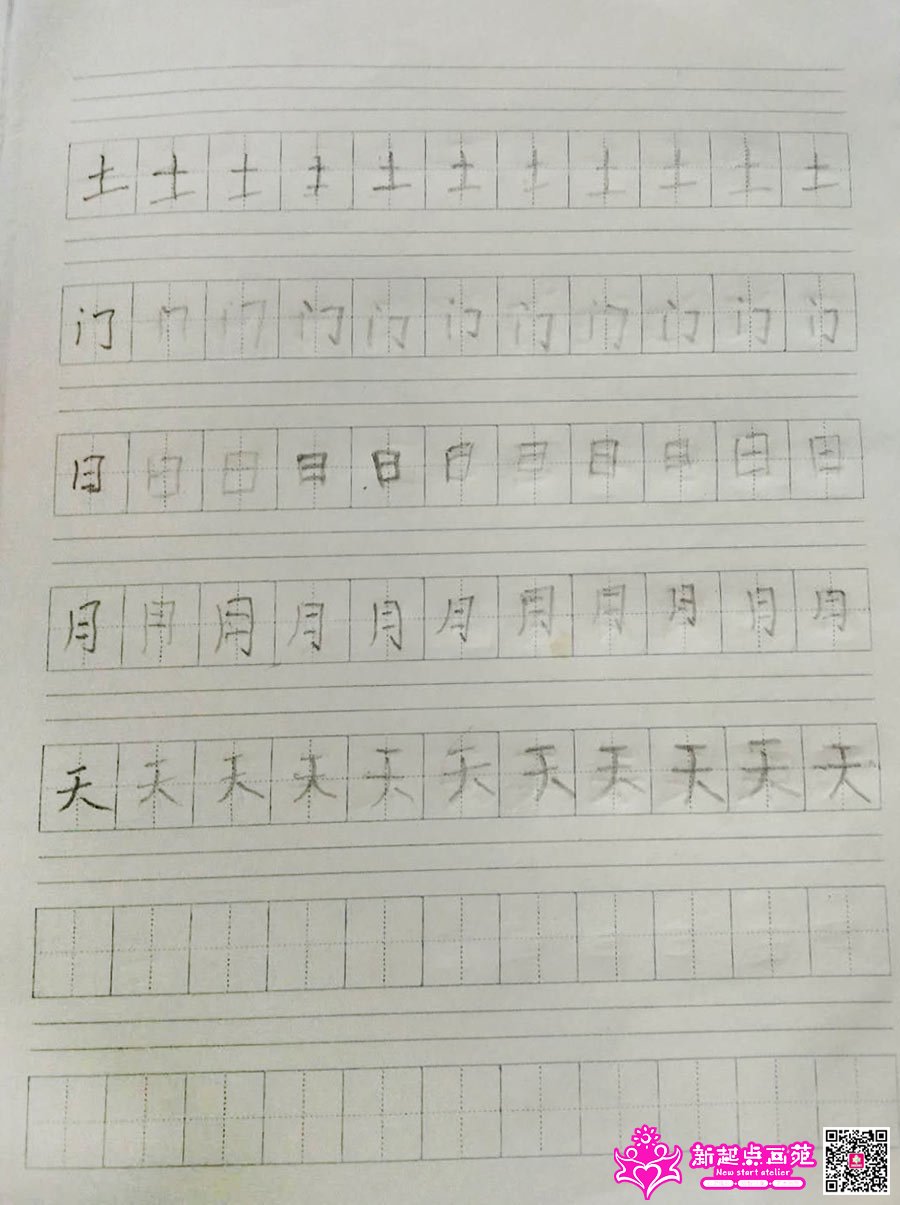 土土土土土土土土土土土
门门门门门门门门门门门
目日日日日日日日日日日
月月月月月月月月月月月
天天天天天天天天天天天
新起点画苑
New start atelier